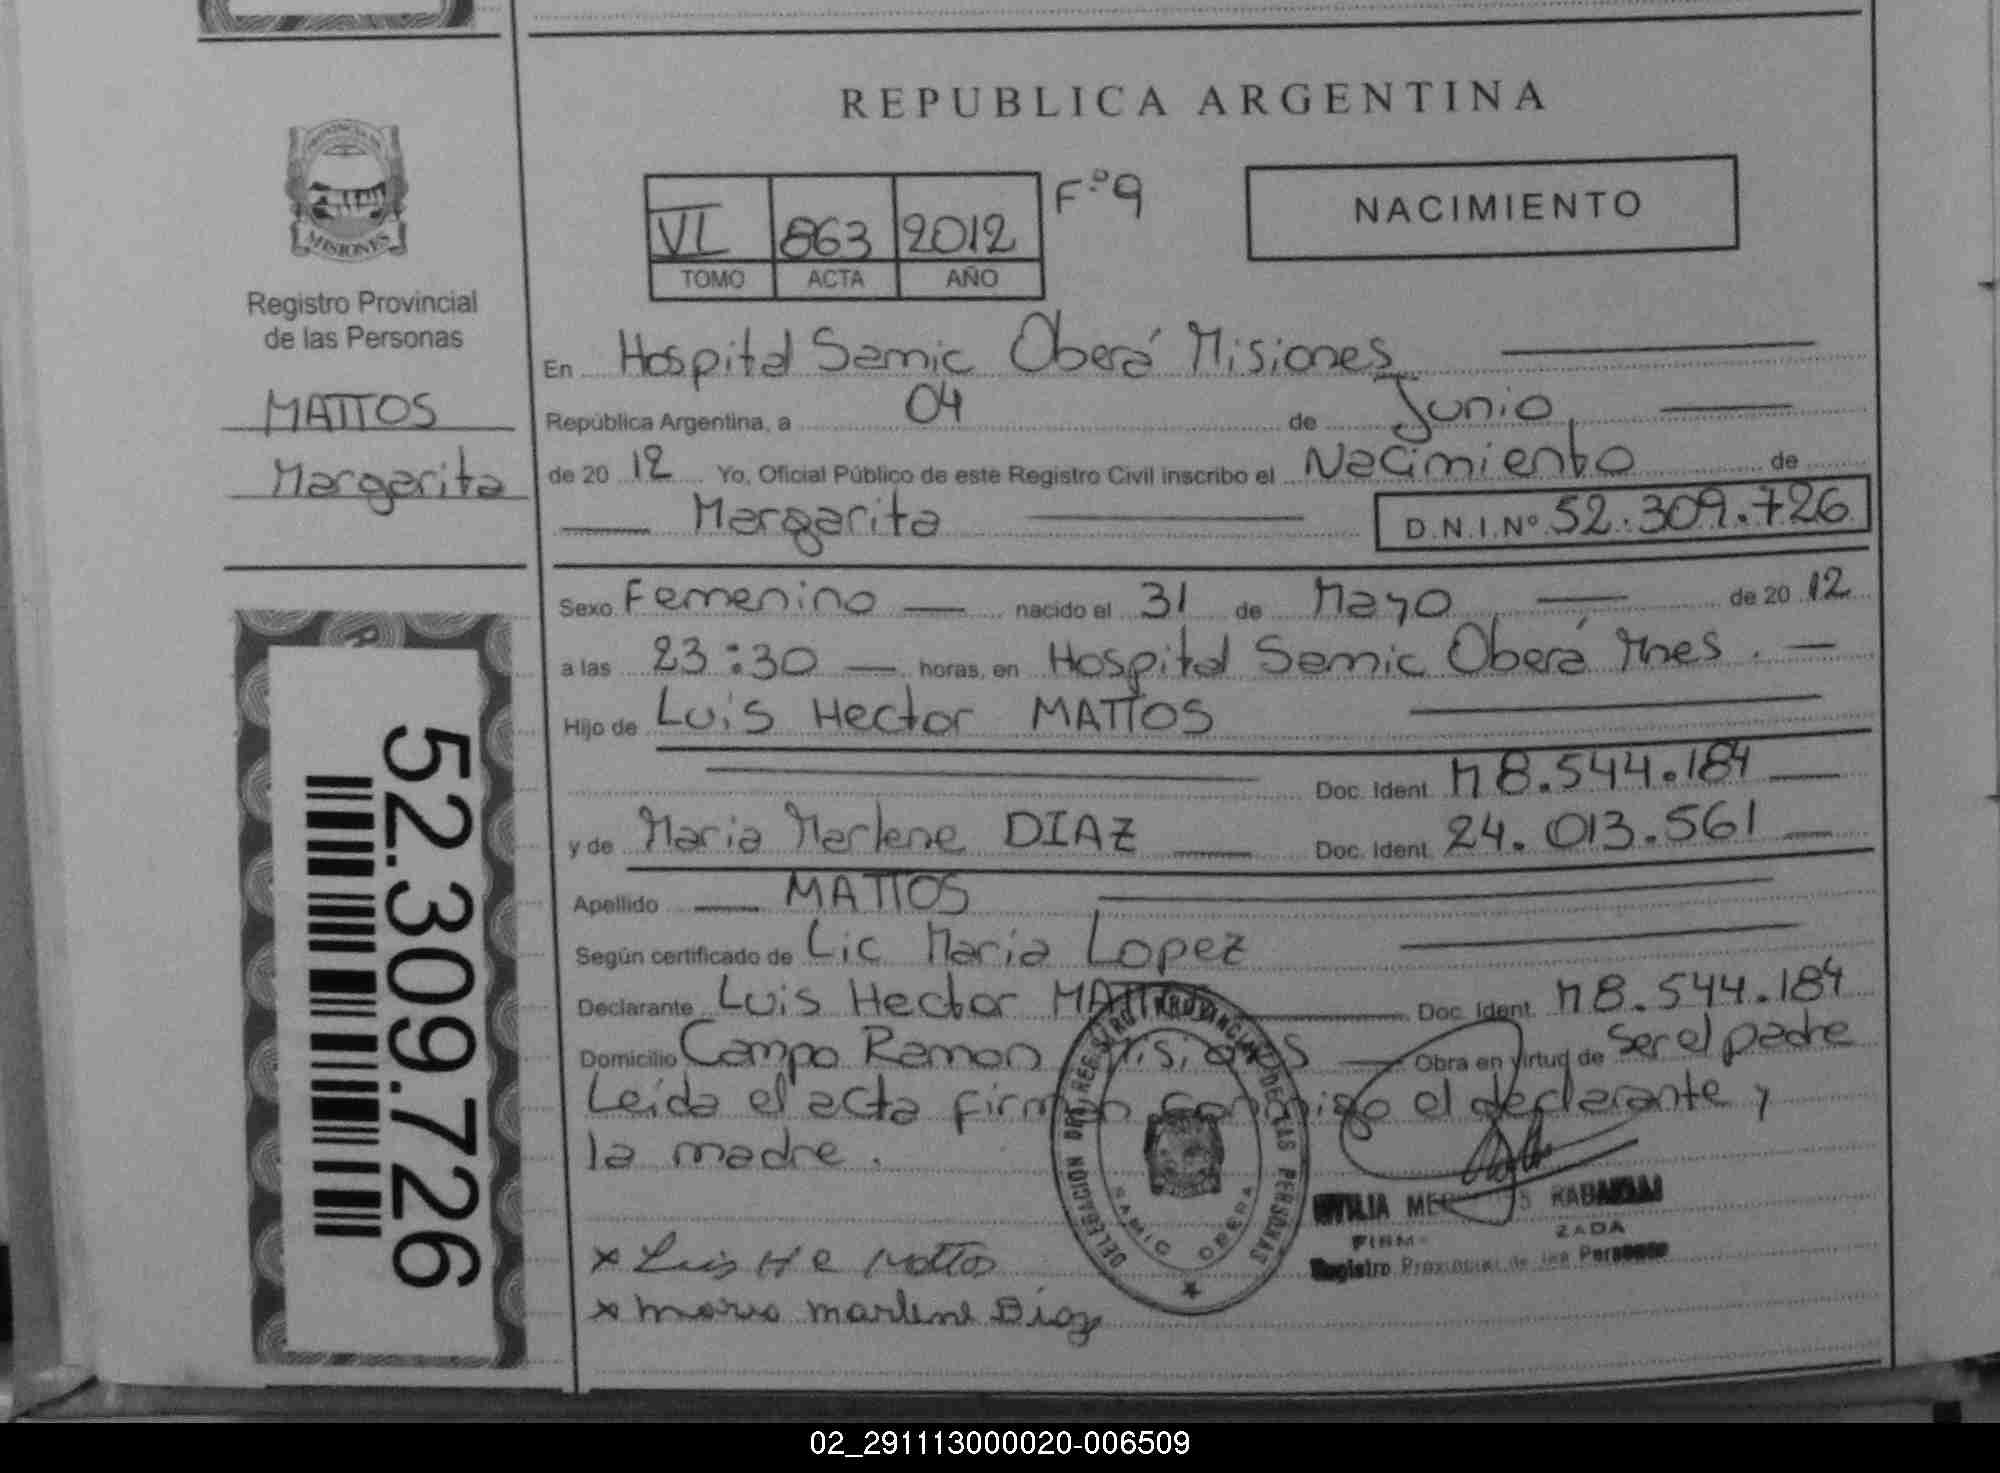 REPUBLICA ARGENTINA
PROVINCIA DE
MISIONES
Registro Provincial
de las Personas
MATTOS
Margarita
52.309.726
VI 863 2012 Fº9
TOMO ACTA AÑO
NACIMIENTO
En Hospital Samic Oberá Misiones
República Argentina, a 04 de Junio
de 20 12 Yo, Oficial Público de este Registro Civil inscribo el Nacimiento de
Margarita D.N.I.Nº 52.309.726
Sexo Femenino nacido el 31 de Mayo de 20 12
a las 23:30 horas, en Hospital Samic Oberá Mnes.
Hijo de Luis Hector MATTOS
Doc. Ident. M8.544.184
y de Maria Marlene DIAZ Doc. Ident. 24.013.561
Apellido MATTOS
Según certificado de Lic Maria Lopez
Declarante Luis Hector MATTOS Doc. Ident. M8.544.184
Domicilio Campo Ramon Misiones Obra en virtud de ser el padre
Leída el acta firman conmigo el declarante y
la madre.
DELEGACION DEL REGISTRO PROVINCIAL DE LAS PERSONAS
SAMIC OBERA
Registro Provincial de las Personas
x Luis H e Mattos
x maria marlene Diaz
02_291113000020-006509